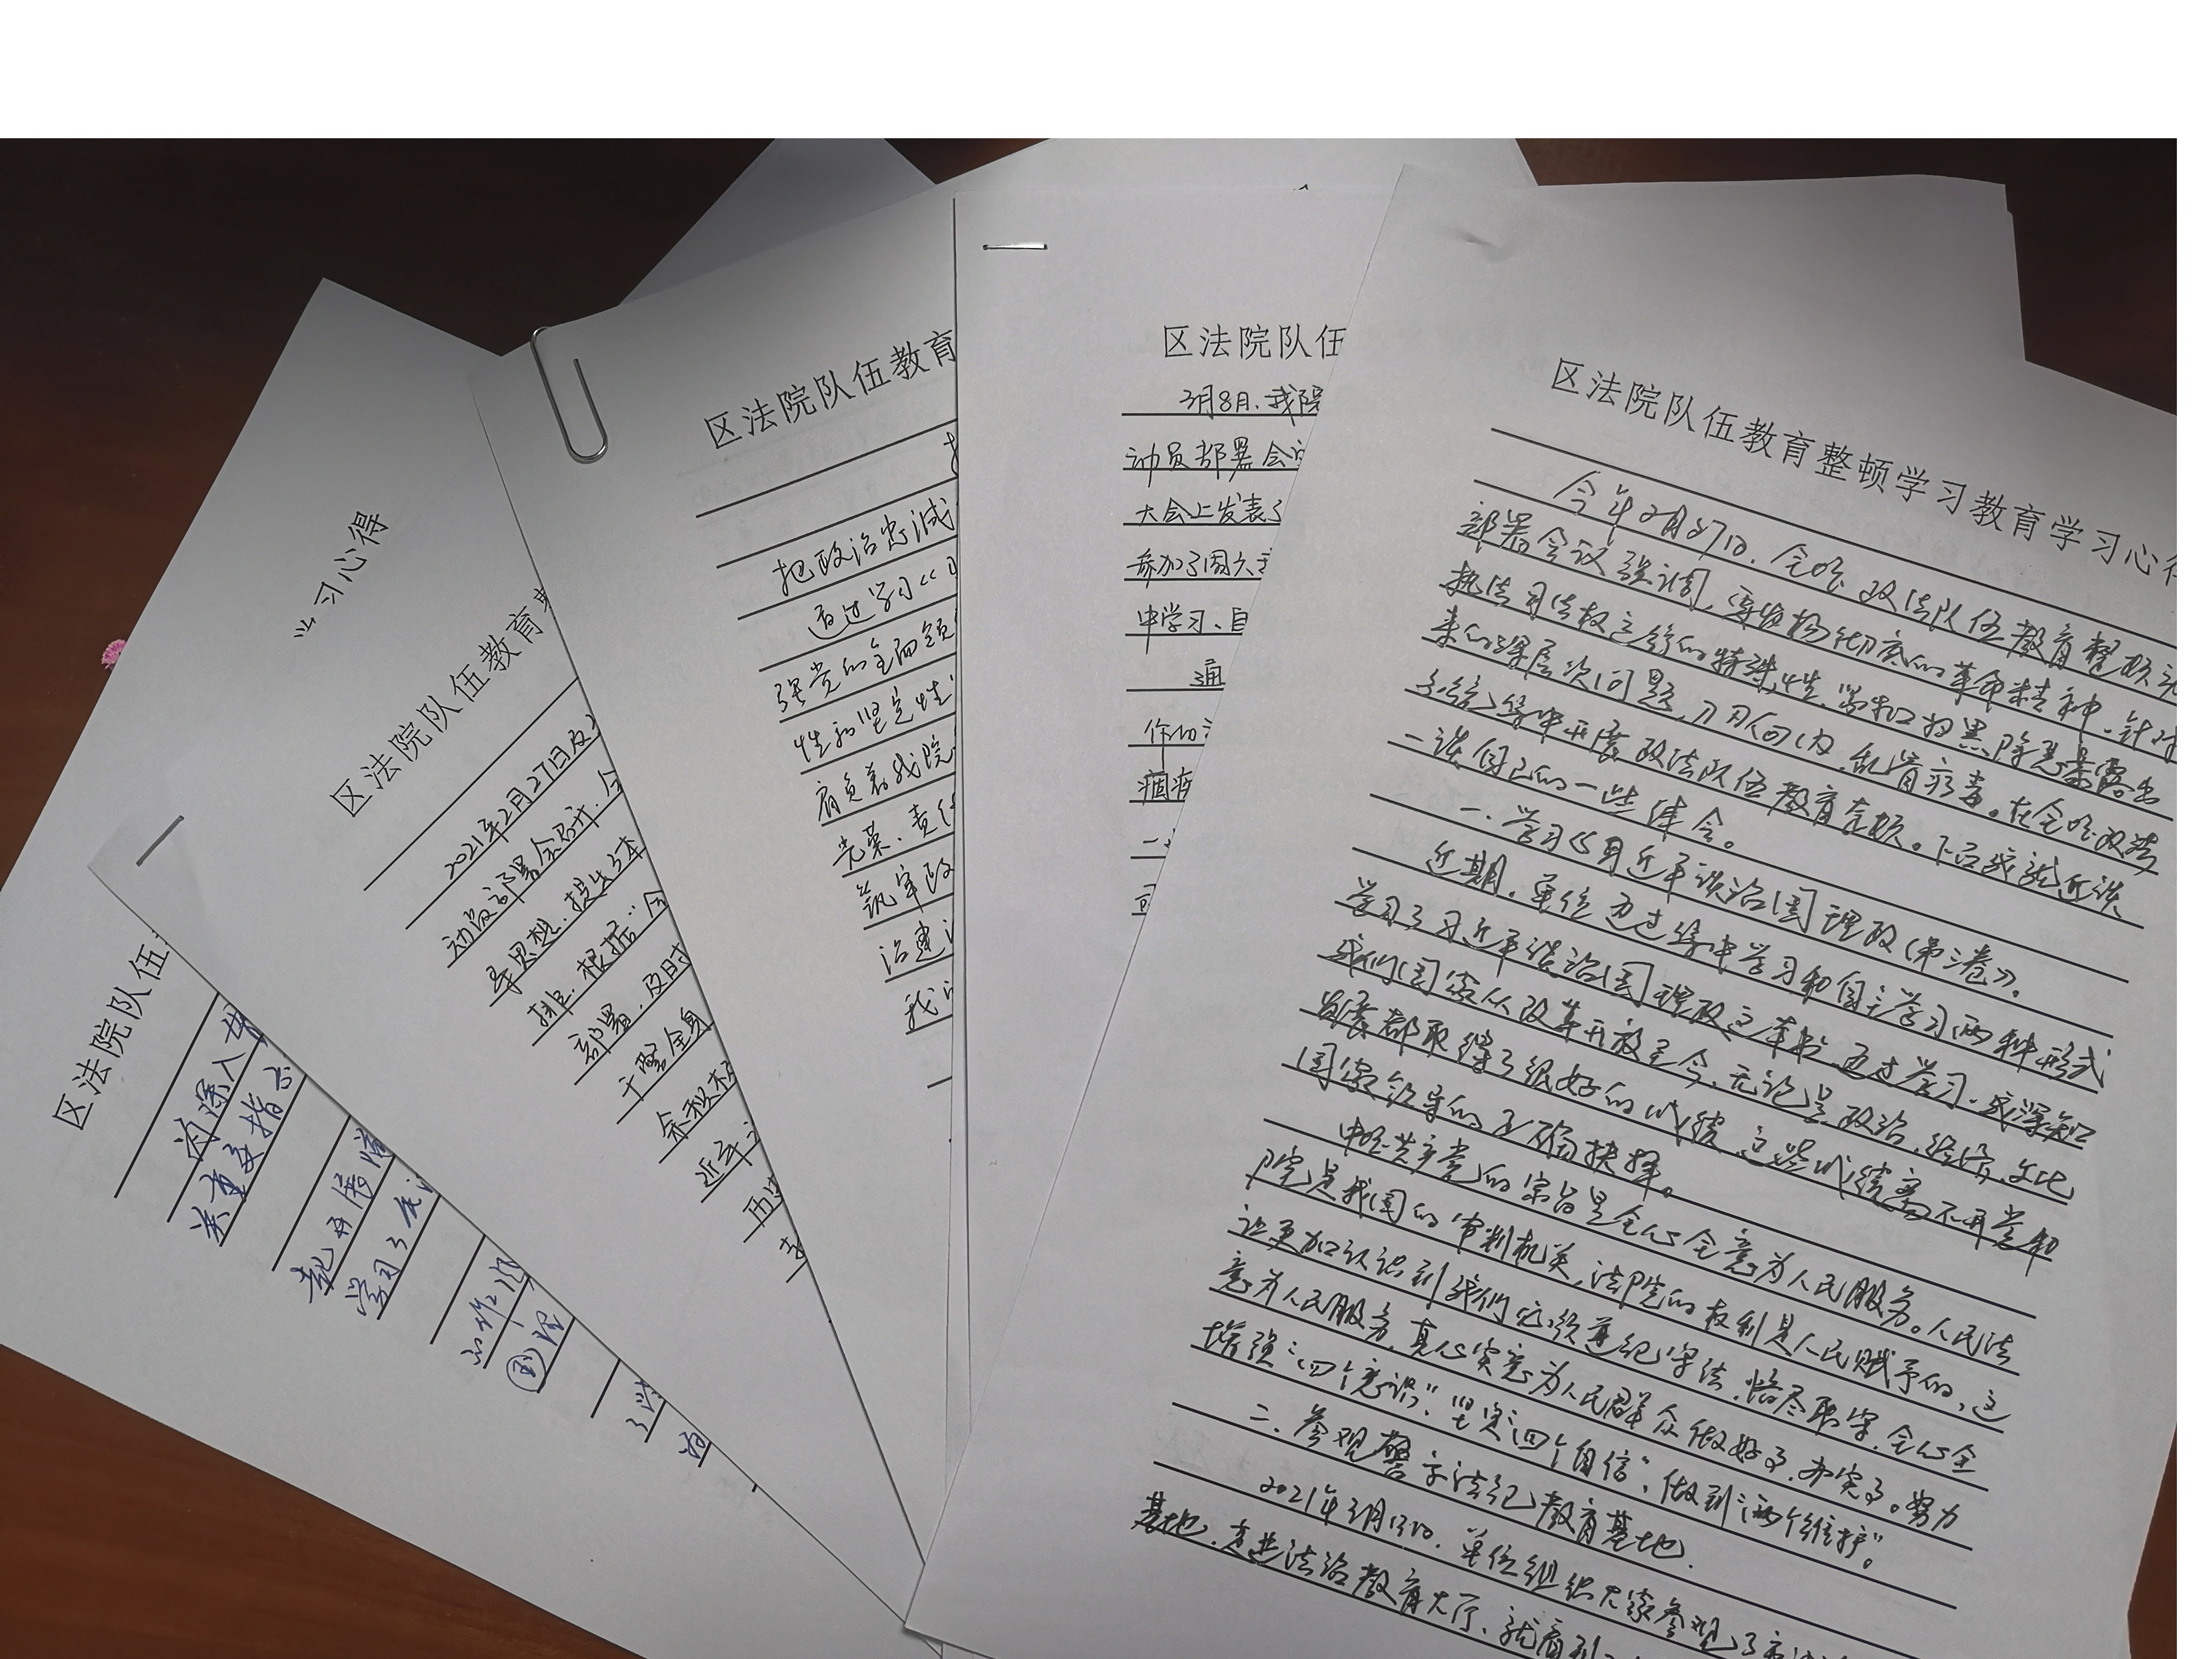 学习心得
区法院队伍
为深入
关重要指示
起开展
学习了
工作
到
了
为
区法院队伍教育
2021年2月27日
动员部署会召开.
导思想.提出
排.根据“全
部署.及时
干警全身
余秒
近平
两
区法院队伍教育
把政治忠诚
通过学习《
强党的全面领
性和坚定性
肩负着我院
光荣、责任
筑牢政
治建
我
区法院队伍
3月8日.我院
动员部署会
大会上发表了
参加了周六
中学习、自
通
作的
痼疾
区法院队伍教育整顿学习教育学习心得
今年2月27日.全国政法队伍教育整顿动
部署会议强调,要发扬彻底的革命精神.针对
执法司法权运行的特殊性.紧扣扫黑除恶暴露出
来的深层次问题,刀刃向内.刮骨疗毒。在全国政法
系统集中开展政法队伍教育整顿。下面我就近谈
一谈自己的一些体会。
一.学习《习近平谈治国理政(第三卷)》.
近期.单位通过集中学习和自主学习两种形式
学习了习近平谈治国理政这本书.通过学习.我深知
我们国家从改革开放至今,无论是政治.经济,文化
发展都取得了很好的成绩.这些成绩离不开党和
国家领导的正确抉择。
中国共产党的宗旨是全心全意为人民服务。人民法
院是我国的审判机关,法院的权利是人民赋予的,这
让更加认识到我们必须遵纪守法.恪尽职守.全心全
意为人民服务.真心实意为人民群众做好事.办实事。努力
增强“四个意识”.坚定“四个自信”.做到“两个维护”。
二.参观警示法纪教育基地.
2021年3月13日.单位组织大家参观了市
基地.走进法治教育大厅、就看到